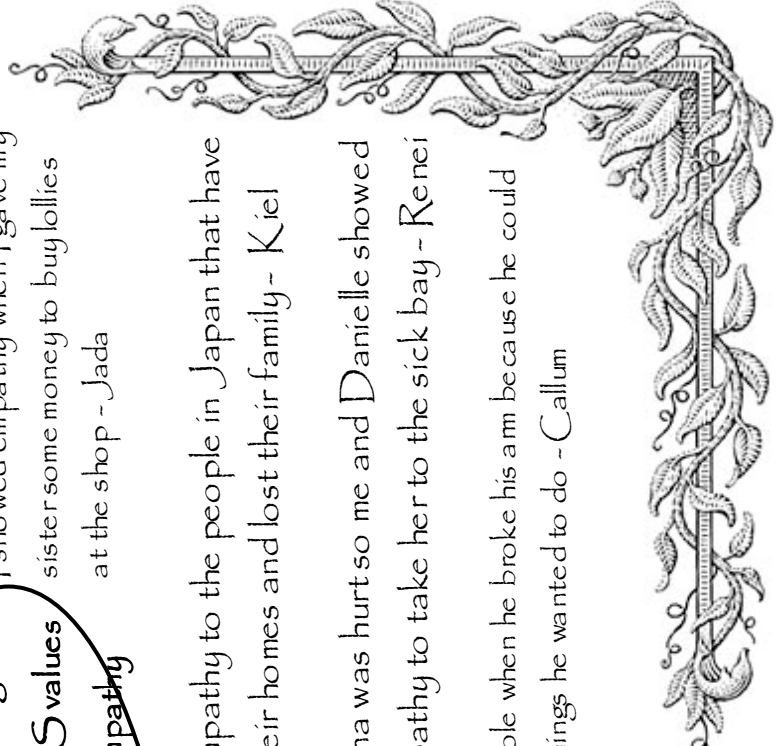 showed empathy when I gave my
sister some money to buy lollies
at the shop - Jada
S values
pathy
pathy to the people in Japan that have
eir homes and lost their family - Kiel
na was hurt so me and Danielle showed
pathy to take her to the sick bay - Renei
ole when he broke his arm because he could
ings he wanted to do - Callum